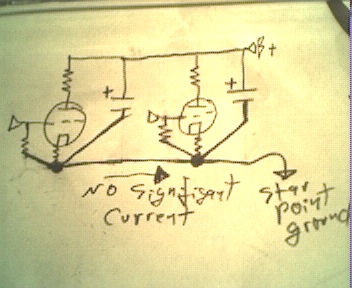 B+
+
+
No Significant
Current
Star
Point
ground